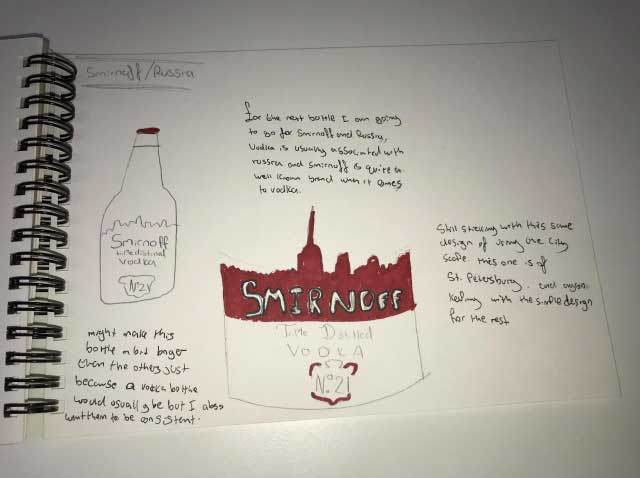 Smirnoff/Russia
for the next bottle I am going
to go for Smirnoff and Russia,
Vodka is usually associated with
russia and Smirnoff is quite a
well known brand when it comes
to vodka.
Smirnoff
vodka
N°21
SMIRNOFF
Triple Distilled
VODKA
N°21
Still sticking with this same
design of using the city
scape. this one is of
St. Petersburg. and again
keeping with the simple design
for the rest
might make this
bottle a bit bigger
than the others just
because a vodka bottle
would usually be but I also
want them to be consistent.